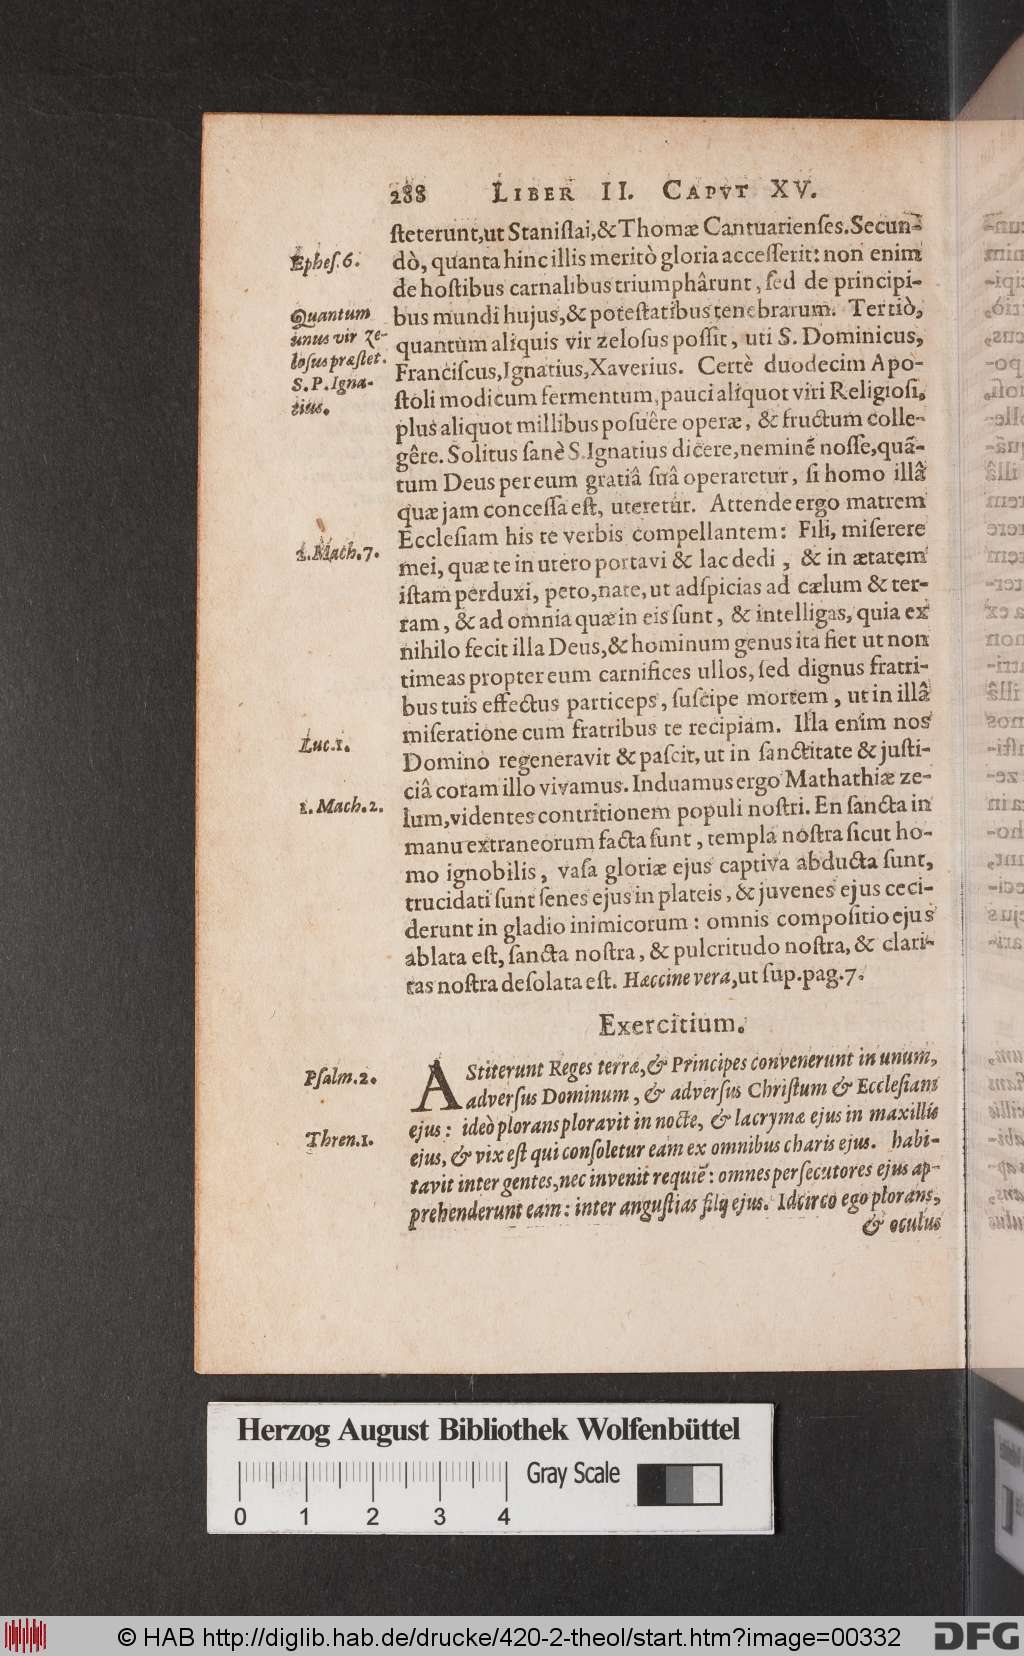 288 LIBER II. CAPVT XV.
ſteterunt,ut Staniſlai,&Thomæ Cantuarienſes.Secun-
Epheſ.6.
dò, quanta hinc illis meritò gloria acceſſerit: non enim
de hoſtibus carnalibus triumphârunt, ſed de principi-
Quantum
bus mundi hujus,& poteſtatibus tenebrarum. Tertiò,
unus vir ze-
quantum aliquis vir zeloſus poſſit, uti S. Dominicus,
loſus præſtet.
Franciſcus,Ignatius,Xaverius. Certè duodecim Apo-
S.P.Igna-
ſtoli modicum fermentum,pauci aliquot viri Religioſi,
tius.
plus aliquot millibus poſuêre operæ, & fructum colle-
gêre. Solitus ſanè S.Ignatius dicere,neminē noſſe,quā-
tum Deus per eum gratiâ ſuâ operaretur, ſi homo illâ
quæ jam conceſſa eſt, uteretur. Attende ergo matrem
Eccleſiam his te verbis compellantem: Fili, miſerere
2.Mach.7.
mei, quæ te in utero portavi & lac dedi, & in ætatem
iſtam perduxi, peto,nate,ut adſpicias ad cælum & ter-
ram, & ad omnia quæ in eis ſunt, & intelligas, quia ex
nihilo fecit illa Deus,& hominum genus ita fiet ut non
timeas propter eum carnifices ullos, ſed dignus fratri-
bus tuis effectus particeps, ſuſcipe mortem, ut in illâ
miſeratione cum fratribus te recipiam. Illa enim nos
Luc.1.
Domino regeneravit & paſcit, ut in ſanctitate & juſti-
ciâ coram illo vivamus. Induamus ergo Mathathiæ ze-
1.Mach.2.
lum,videntes contritionem populi noſtri. En ſancta in
manu extraneorum facta ſunt, templa noſtra ſicut ho-
mo ignobilis, vaſa gloriæ ejus captiva abducta ſunt,
trucidati ſunt ſenes ejus in plateis, & juvenes ejus ceci-
derunt in gladio inimicorum: omnis compoſitio ejus
ablata eſt, ſancta noſtra, & pulcritudo noſtra, & clari-
tas noſtra deſolata eſt. Hæccine vera,ut ſup.pag.7.
Exercitium.
Pſalm.2.
AStiterunt Reges terræ,& Principes convenerunt in unum,
adverſus Dominum, & adverſus Chriſtum & Eccleſiam
ejus: ideò plorans ploravit in nocte, & lacrymæ ejus in maxillis
Thren.1.
ejus, & vix eſt qui conſoletur eam ex omnibus charis ejus. habi-
tavit inter gentes,nec invenit requiē: omnes perſecutores ejus ap-
prehenderunt eam: inter anguſtias filij ejus. Idcirco ego plorans,
& oculus
Herzog August Bibliothek Wolfenbüttel
Gray Scale
0 1 2 3 4
© HAB http://diglib.hab.de/drucke/420-2-theol/start.htm?image=00332
DFG